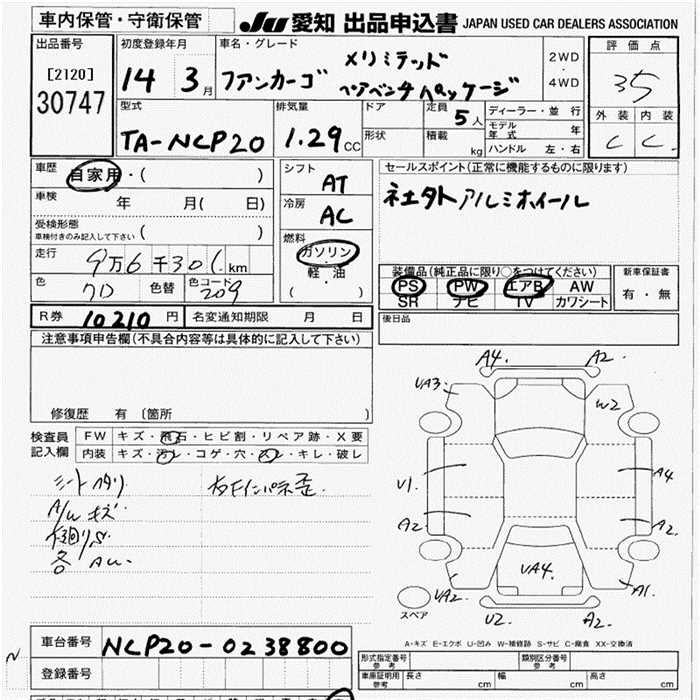 車内保管・守衛保管
JU 愛知 出品申込書 JAPAN USED CAR DEALERS ASSOCIATION
出品番号
[2120]
30747
初度登録年月
14 3月
車名・グレード
ファンカーゴ
Xリミテッド
ペアベンチパッケージ
2WD
・
4WD
評価点
35
外装 内装
C C
型式
TA-NCP20
排気量
1.29 CC
ドア
形状
定員
5人
積載 kg
ディーラー・並行
モデル年式 年
ハンドル 左・右
車歴
自家用・( )
車検 年 月( 日)
受検形態
車検付きのみ記入して下さい ( )
走行
9万6千301.km
色
クロ
色替
色コード
209
シフト
AT
冷房
AC
燃料
ガソリン
・
軽・油
( )
セールスポイント(正常に機能するものに限ります)
社外アルミホイール
装備品(純正品に限り○をつけてください)
PS PW エアB AW
SR ナビ TV カワシート
新車保証書
有・無
R券 10210 円
名変通知期限 月 日
後日品
注意事項申告欄(不具合内容等は具体的に記入して下さい)
修復歴 有 〔箇所 〕
検査員
記入欄
FW キズ・飛石・ヒビ割・リペア跡・X要
内装 キズ・汚レ・コゲ・穴・スレ・キレ・破レ
シートヘタリ
A/W キズ
各 AU
A4. A2.
UA3.
W2
U1.
A4
A2.
A2
UA4.
UA2.
A1.
U2
A2.
スペア
A-キズ E-エクボ U-凹み W-補修跡 S-サビ C-腐食 XX-交換済
車台番号 NCP20-0238800
登録番号
形式指定番号
参考
類別区分番号
参考
車庫証明用
参考
長さ cm
幅 cm
高さ cm